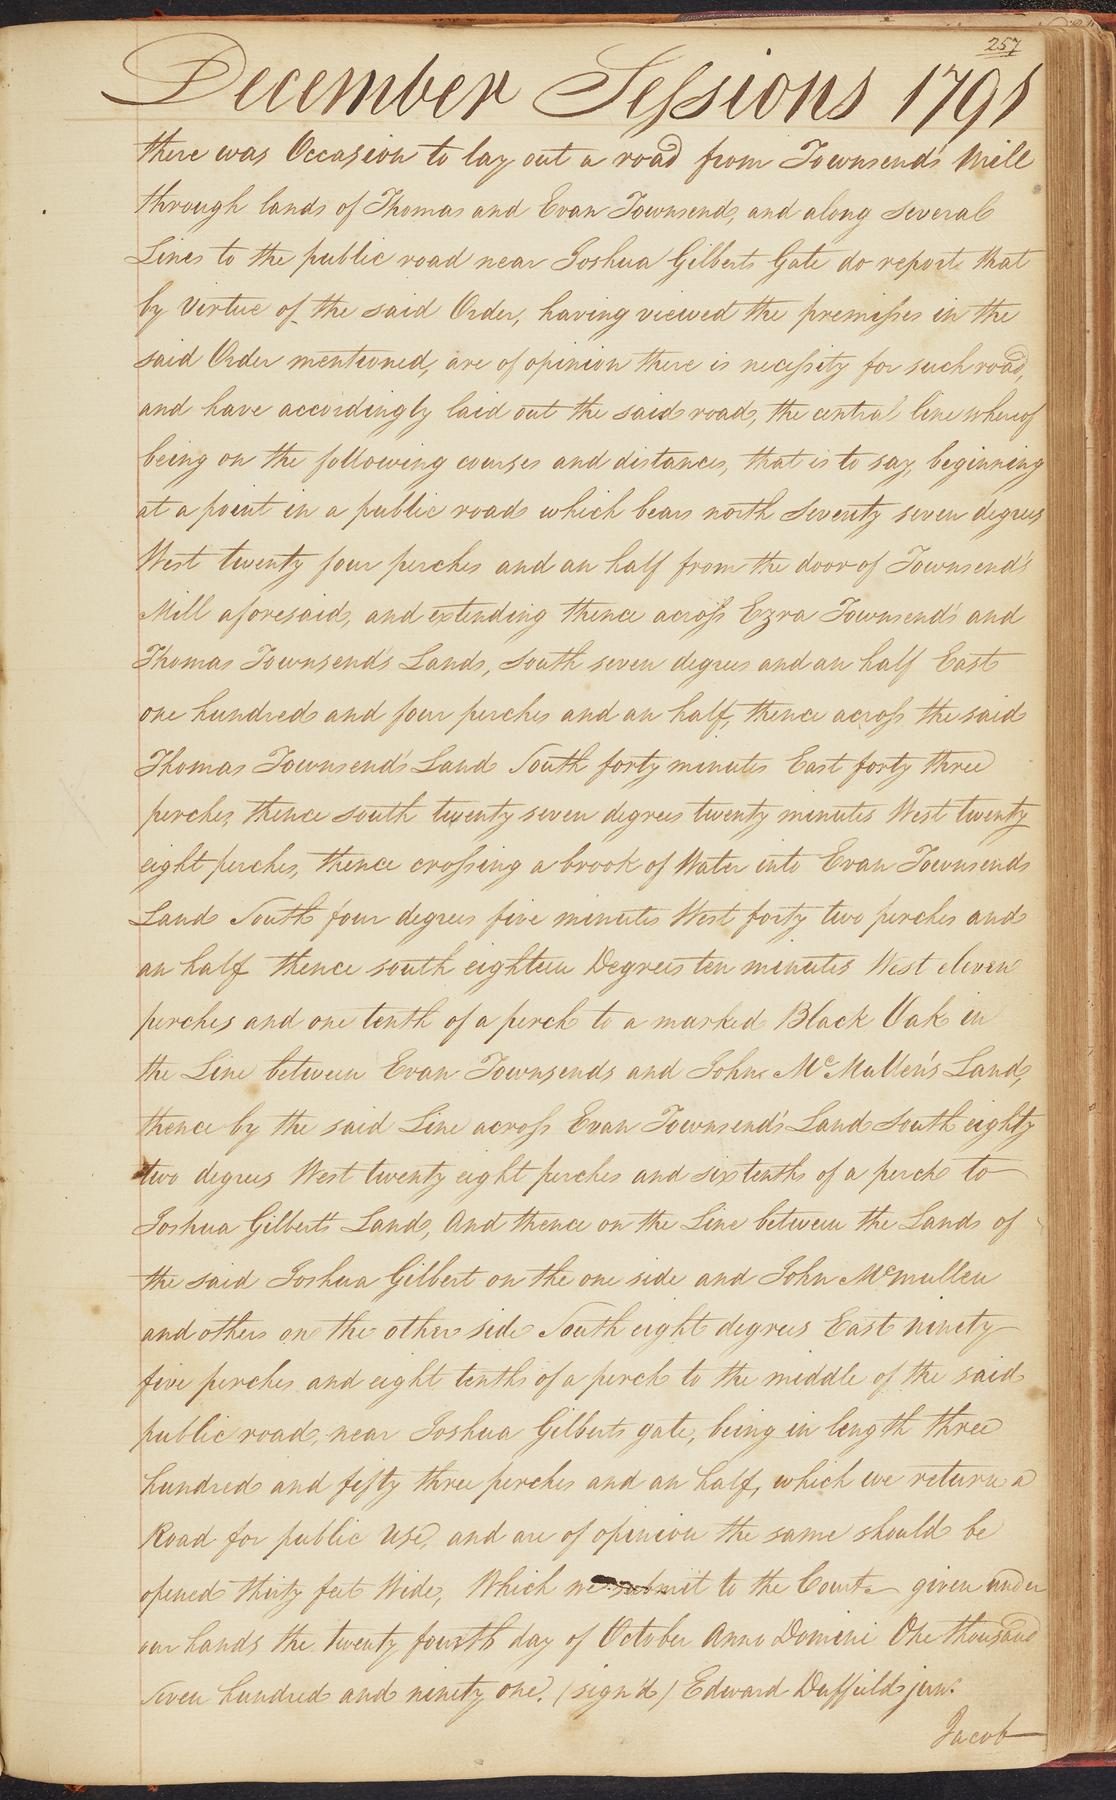 257
December Sessions 1791
there was Occasion to lay out a road from Townsend's Mill
through lands of Thomas and Evan Townsend, and along several
Lines to the public road near Joshua Gilberts Gate do report that
by Virtue of the said Order, having viewed the premisses in the
said Order mentioned, are of opinion there is necessity for such road,
and have accordingly laid out the said road, the central line whereof
being on the following courses and distances, that is to say, beginning
at a point in a public road which bears north seventy seven degrees
West twenty four perches and an half from the door of Townsend's
Mill aforesaid, and extending thence across Ezra Townsend's and
Thomas Townsend's Lands, South seven degrees and an half East
one hundred and four perches and an half, thence across the said
Thomas Townsend's Land South forty minutes East forty three
perches, thence south twenty seven degrees twenty minutes West twenty
eight perches, thence crossing a brook of Water into Evan Townsends
Land South four degrees five minutes West forty two perches and
an half thence south eighteen Degrees ten minutes West eleven
perches and one tenth of a perch to a marked Black Oak in
the Line between Evan Townsends and John McMullen's Land,
thence by the said Line across Evan Townsend's Land South eighty
two degrees West twenty eight perches and six tenths of a perch to
Joshua Gilbert's Land, And thence on the Line between the Lands of
the said Joshua Gilbert on the one side and John Mcmullen
and others on the other side South eight degrees East ninety
five perches and eight tenths of a perch to the middle of the said
public road, near Joshua Gilberts gate, being in length three
hundred and fifty three perches and an half, which we return a
Road for public Use, and are of opinion the same should be
opened thirty feet Wide, Which we submit to the Court given under
our hands the twenty fourth day of October Anno Domini One thousand
Seven hundred and ninety one. (sign'd) Edward Duffield junr.
Jacob